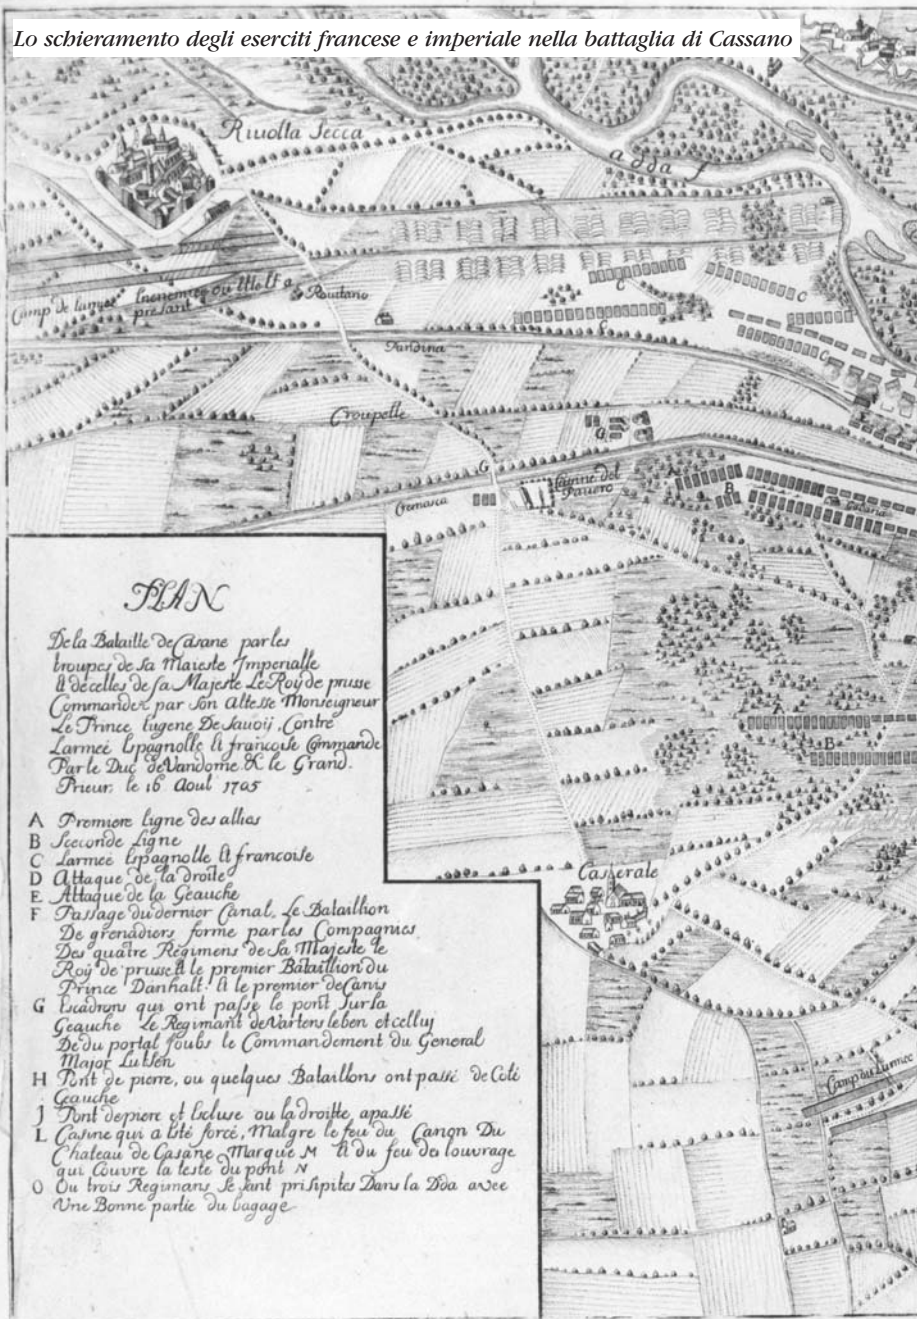 Lo schieramento degli eserciti francese e imperiale nella battaglia di Cassano
Riuolta Secca
adda f
Camp de larmee
Roultano
C
C
C
C
Pandina
Croupelle
G
G
Cremasca
Casine del
A
B
A
B
Casserale
Camp du Larmee
PLAN
De la Bataille de Casane par les
troupes de sa Maieste Imperialle
et de celles de sa Majeste Le Roy de prusse
Commander par son Altesse Monseigneur
Le Prince Eugene De Sauoij, Contre
Larmeé Espagnolle et francoise Commande
Par le Duc de Vandome & le Grand.
Prieur, le 16 Aout 1705
A Premiere ligne des allies
B Seconde Ligne
C Larmeé Espagnolle et francoise
D Attaque de la droite
E Attaque de la Geauche
F Passage du dernier Canal. Le Bataillion
De grenadiers forme par les Compagnies
Des quatre Regimens de Sa Majeste le
Roÿ de prusse et le premier Bataillion du
Prince Danhalt. et le premier de Canis
G Escadrons qui ont passe le pont Sur la
Geauche Le Regimant de Vartens leben et celluj
De du portal soubs le Commandement du General
Major Lutsen
H Pont de pierre, ou quelques Bataillons ont passé de Coté
Geauche
J Pont de piere et Escluse ou la droitte, apassé
L Casine qui a Esté forcé, Malgre le feu du Canon Du
Chateau de Casane Marque M et du feu de louvrage
qui Couvre la teste du pont N
O Ou trois Regimans Se sont prisipites Dans la Dda avec
Une Bonne partie du bagage